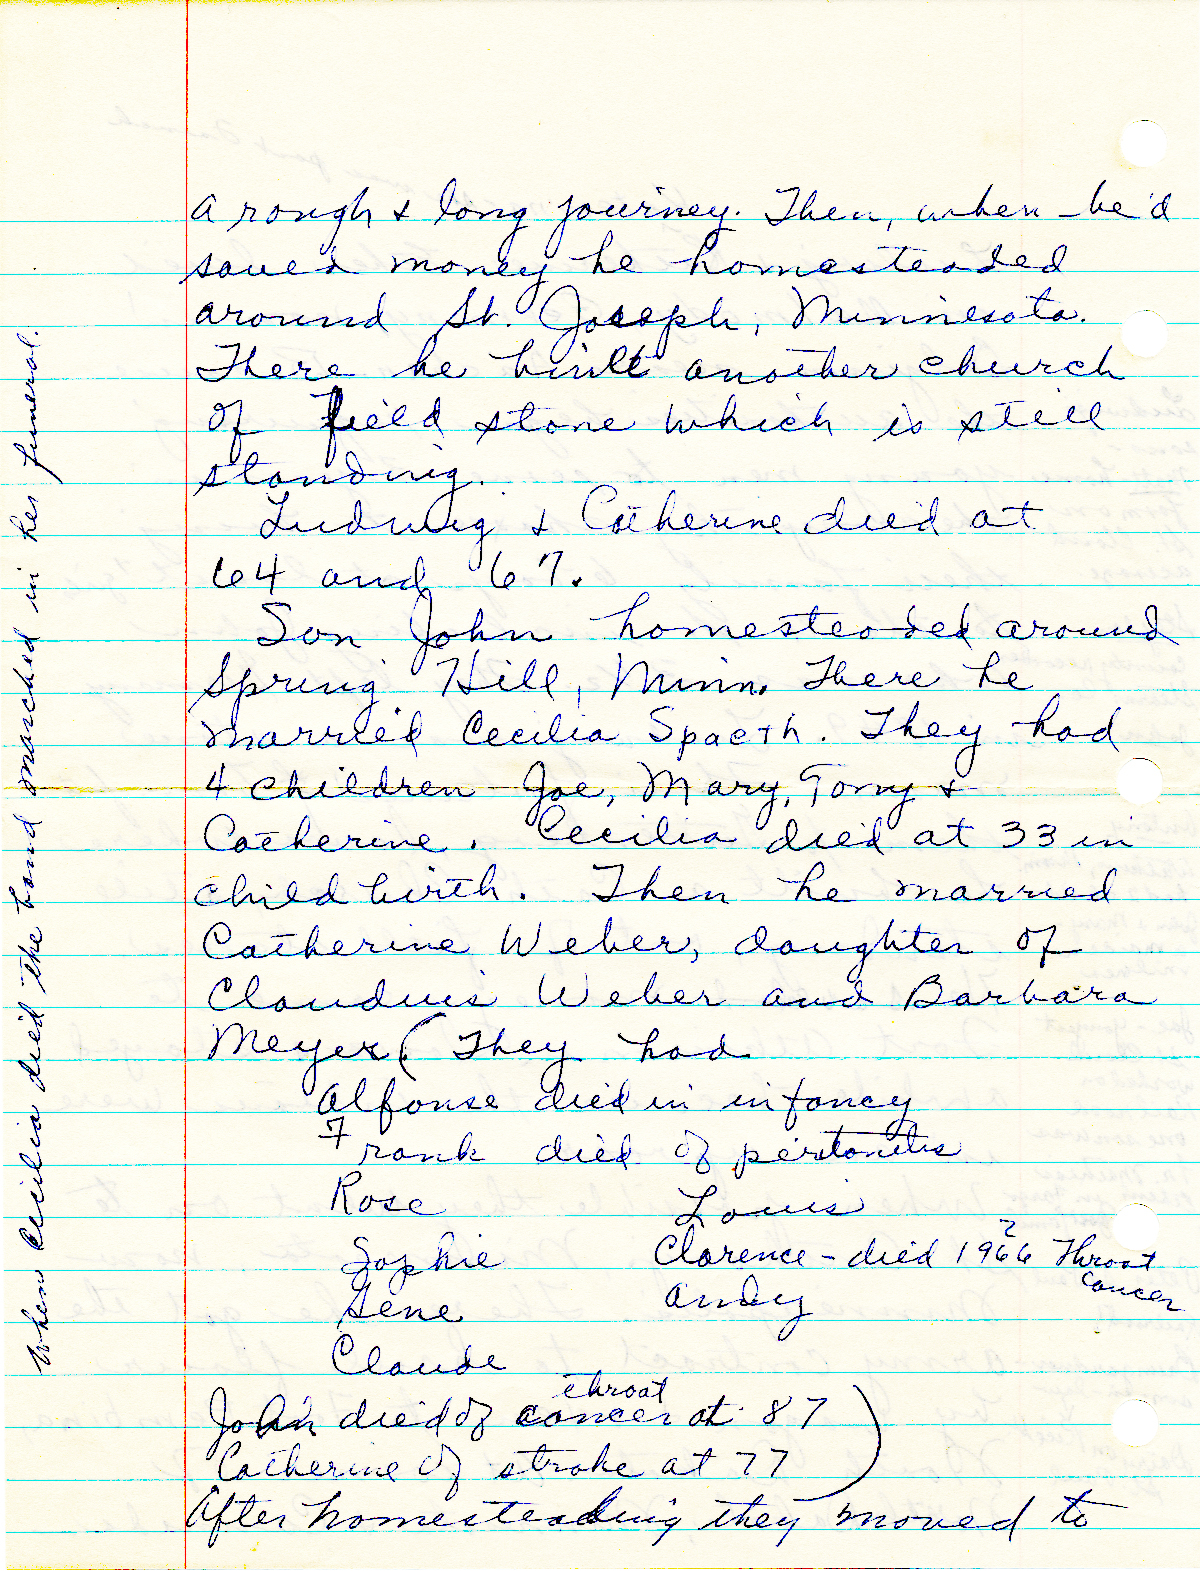 a rough & long journey. Then, when he'd
saved money he homesteaded
around St. Joseph, Minnesota.
There he built another church
of field stone which is still
standing.
Ludwig & Catherine died at
64 and 67.
Son John homesteaded around
Spring Hill, Minn. There he
married Cecilia Spaeth. They had
4 children - Joe, Mary, Tony &
Catherine. Cecilia died at 33 in
child birth. Then he married
Catherine Weber, daughter of
Claudius Weber and Barbara
Meyer (They had
Alfonse died in infancy
Frank died of peritonitis
Rose Louis
Sophie Clarence - died 1966 ? Throat cancer
Gene Andy
Claude
John died of throat cancer at 87
Catherine of stroke at 77)
After homesteading they moved to
When Cecilia died the band marched in her funeral.